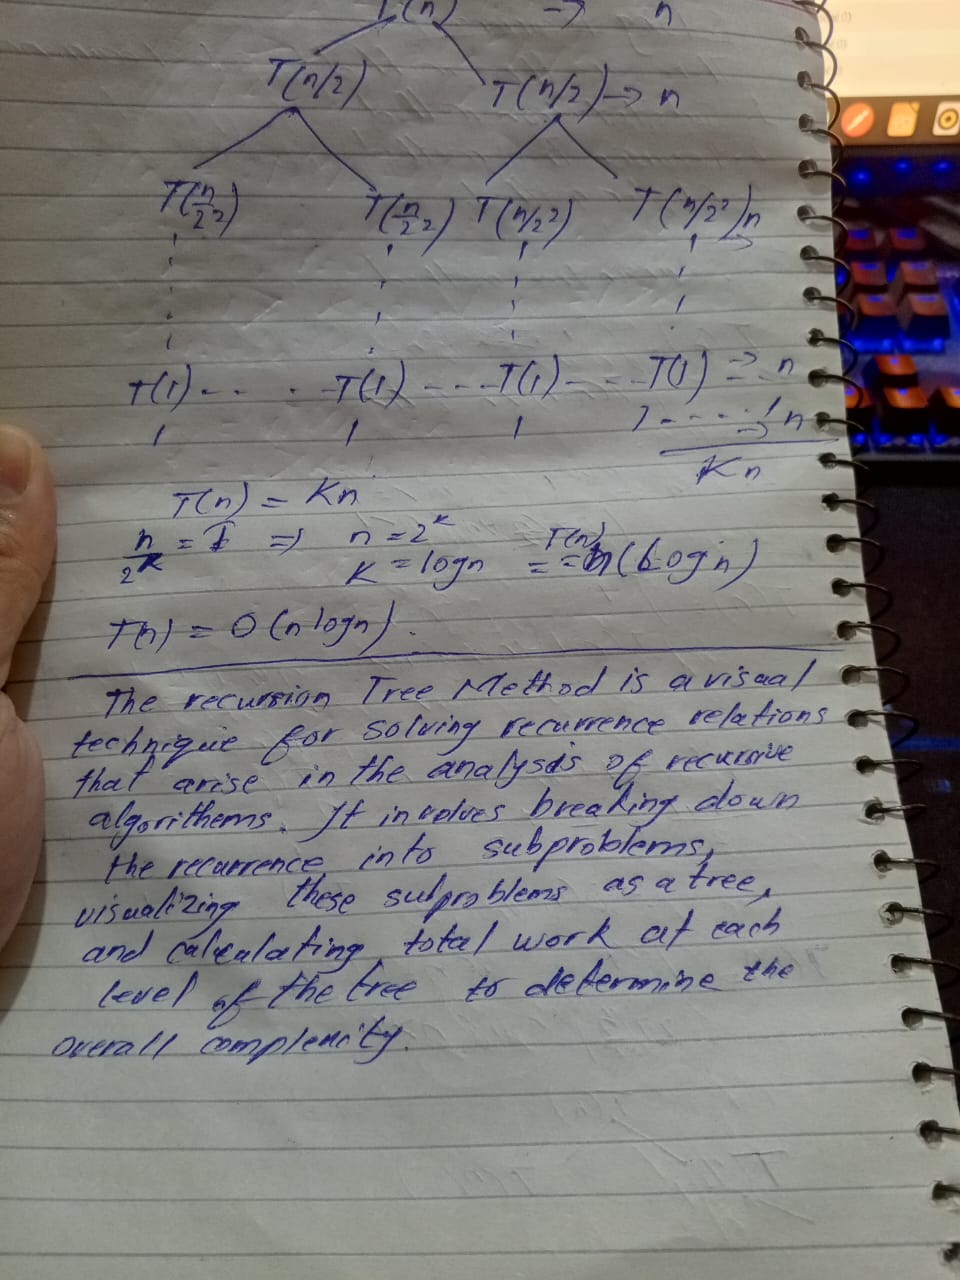 T(n) → n
T(n/2) T(n/2) → n
T(n/2²) T(n/2²) T(n/2²) T(n/2²) n →
T(1) - - - - T(1) - - - T(1) - - - - T(1) → n
1 1 1 1 - - - - 1 → n
Kn
T(n) = Kn
n/2^K = 1 ⇒ n = 2^K T(n)
K = logn = = n(logn)
T(n) = O(nlogn).
The recursion Tree Method is a visual
technique for solving recurrence relations
that arise in the analysis of recursive
algorithems. It involves breaking down
the recurrence into subproblems,
visualizing these subproblems as a tree,
and calculating total work at each
level of the tree to determine the
overall complenity.